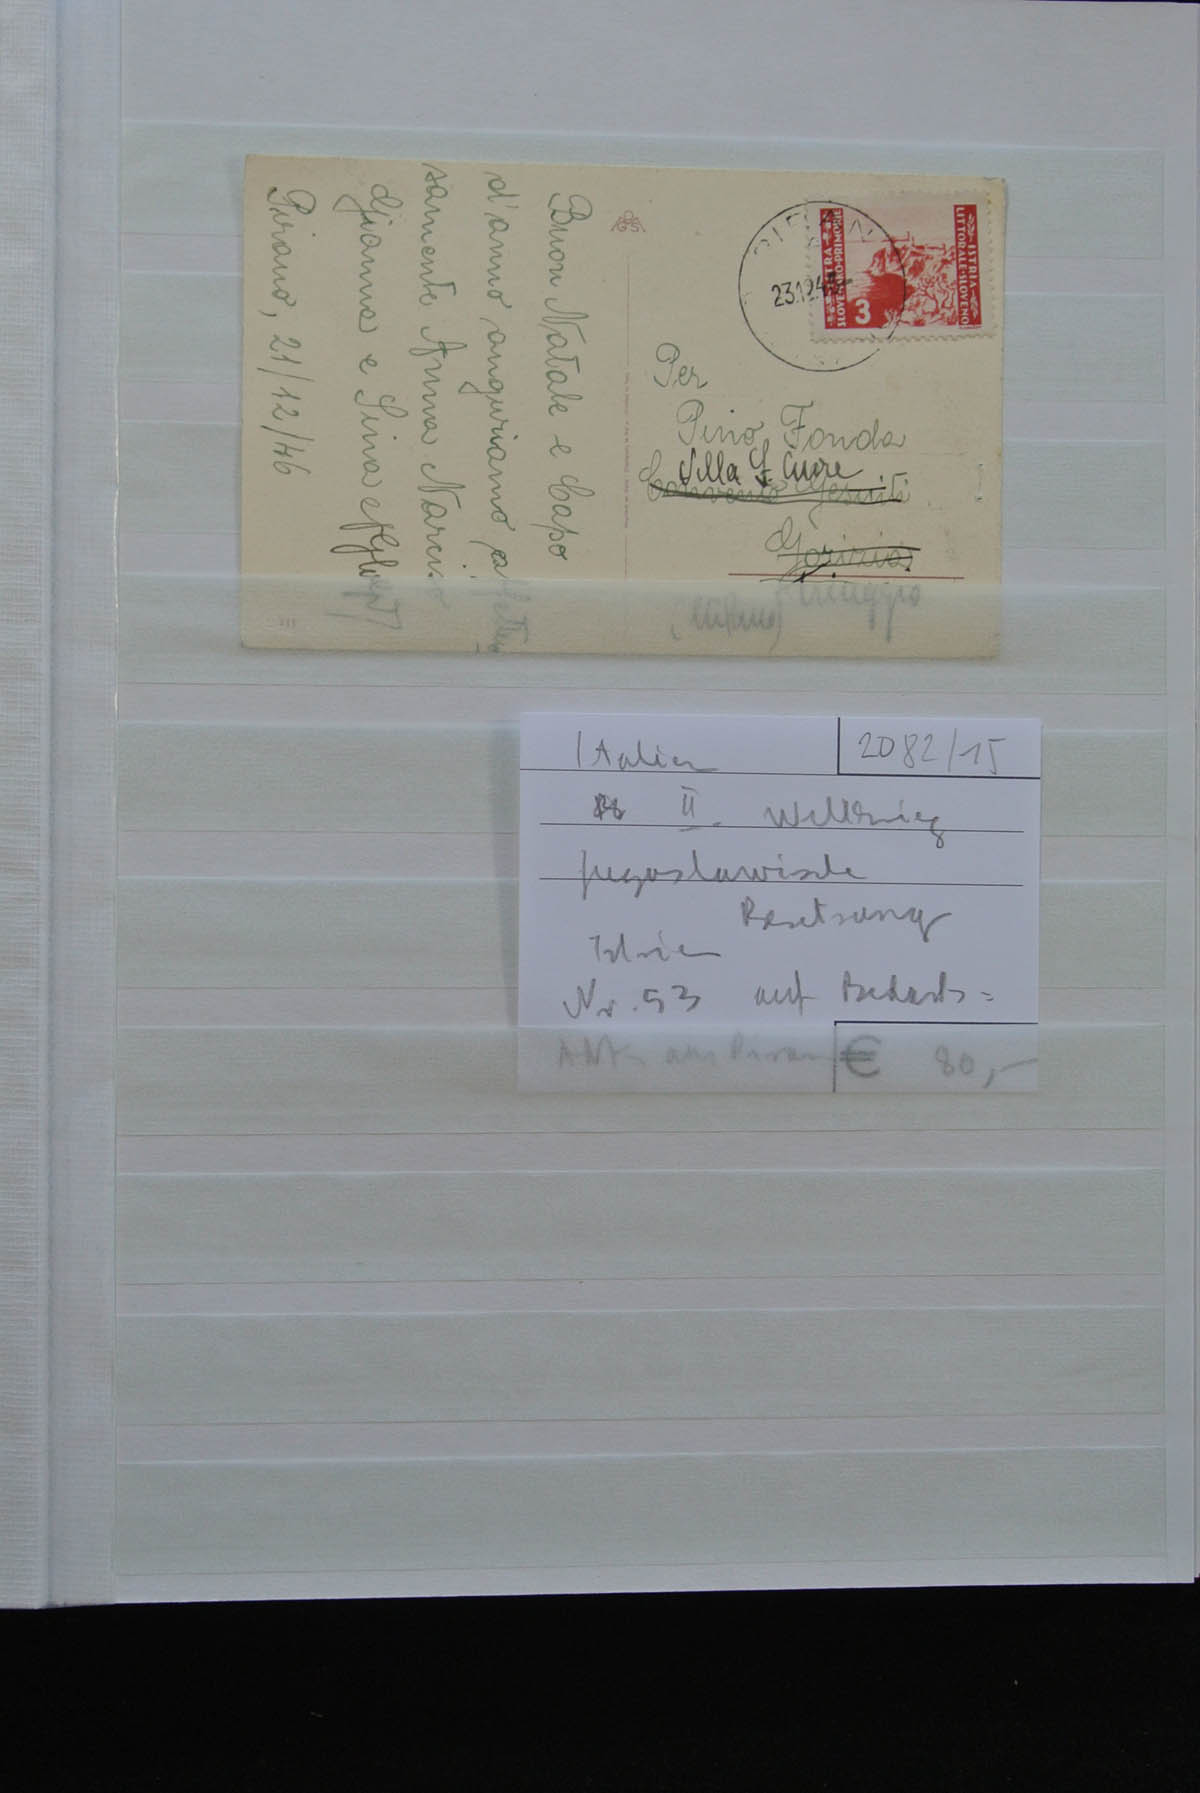 Buon Natale e Capo
d'anno auguriamo
samente Anna Narciso
Gianna e Lina
Pirano, 21/12/46
PIRAN
23.12.4
ISTRA
SLOVENSKO PRIMORJE
3
ISTRIA
LITTORALE SLOVENO
Per
Pino Fonda
Villa S. Cuore
Convento Gesuiti
Gorizia
Triuggio
(Milano)
Italien
2082/15
II. Weltkrieg
Jugoslawische
Besetzung
Istrien
Nr. 53 auf Bedarfs=
AK aus Piran
€ 80,-